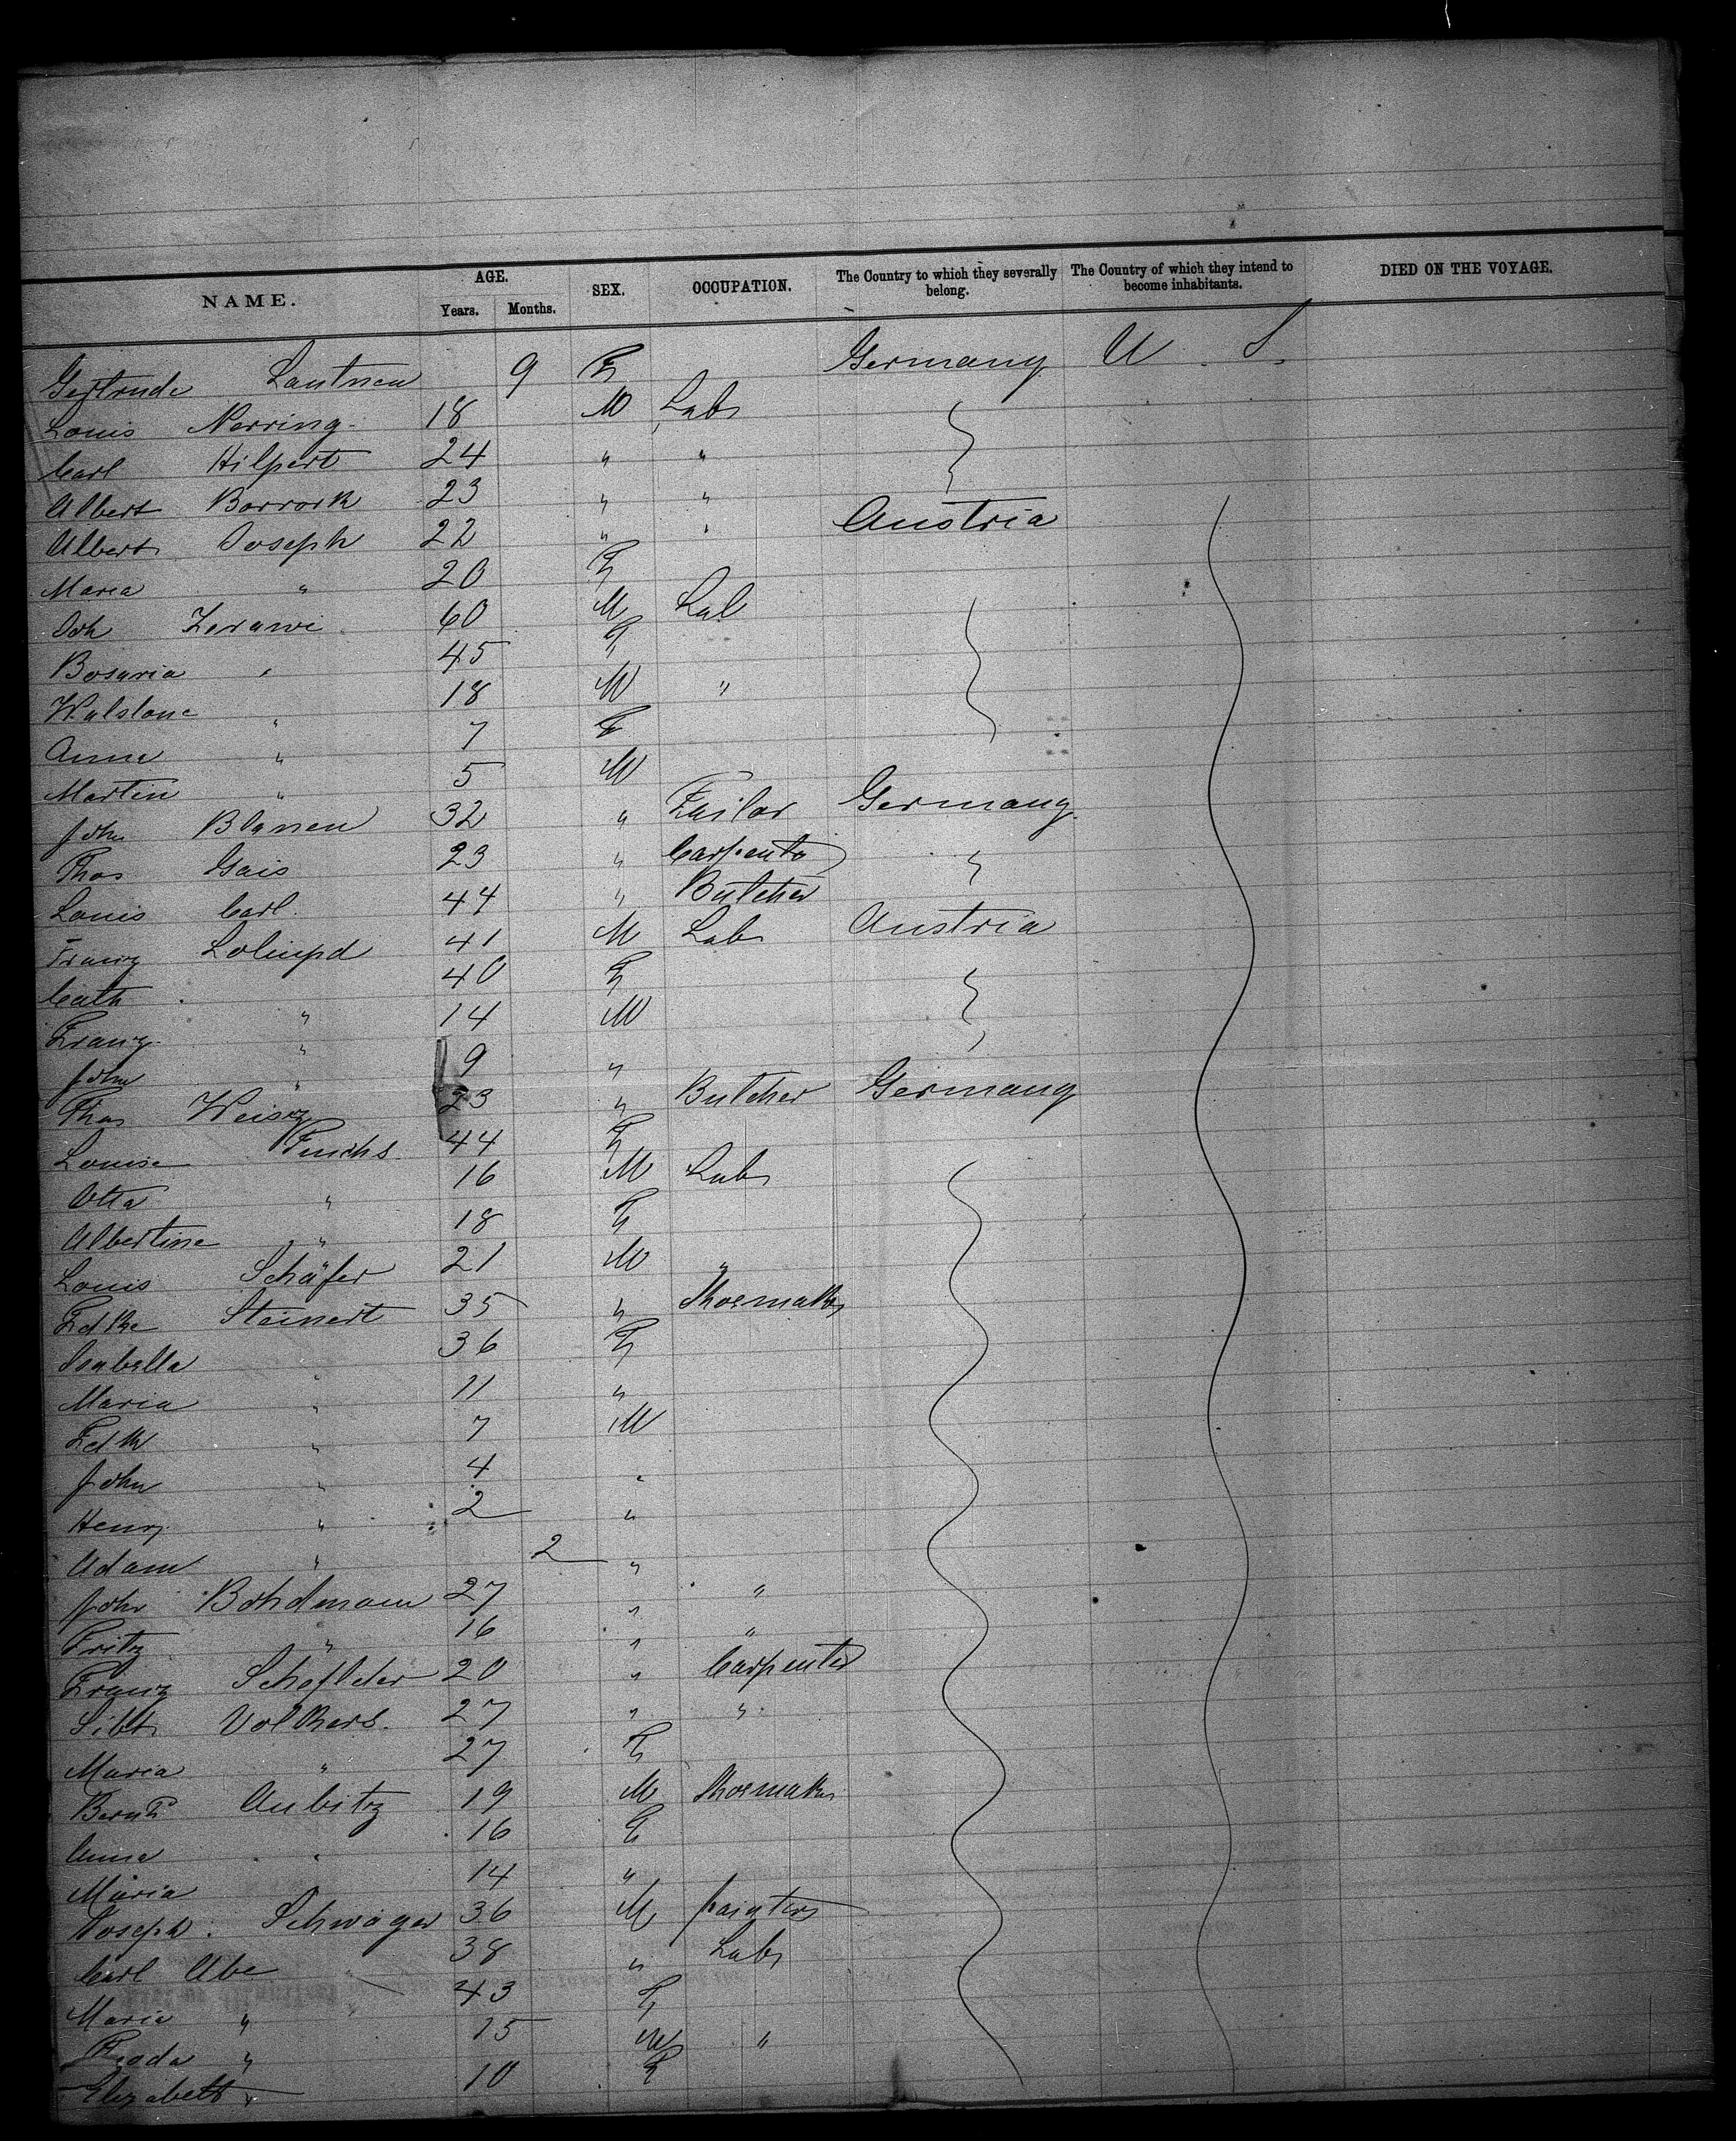 NAME. AGE. SEX. OCCUPATION. The Country to which they severally belong. The Country of which they intend to become inhabitants. DIED ON THE VOYAGE.
Years. Months.
Gertrude 9 F Germany U S
Louis Nerring 18 M Lab
Carl Hilpert 24 " "
Albert 23 " "
Albert Joseph 22 " " Austria
Maria " 20 F
Joh Zerawi 60 M Lab
" 45 F
" 18 M "
Anna " 7 F
Martin " 5 M
John 32 " Tailor Germany
Thos Gais 23 " Carpenter "
Louis Carl 44 " Butcher
Franz 41 M Lab Austria
Cath " 40 F
Franz " 14 M
John " 9 "
Thos 23 " Butcher Germany
Louise Fuchs 44 F
Otto " 16 M Lab
Albertine " 18 F
Louis Schäfer 21 M "
Steinert 35 " Shoemaker
Isabella " 36 F
Maria " 11 "
" 7 M
John " 4 "
Henry " 2 "
Adam " 2 "
John 27 " "
Fritz " 16 " "
Franz 20 " Carpenter
Volkers 27 " "
Maria " 27 F
Aubitz 19 M Shoemaker
Anna " 16 F
Maria 14 "
Joseph Schwager 36 M painter
Carl Abe 38 " Lab
Maria " 43 F
" 15 M "
Elizabeth " 10 F